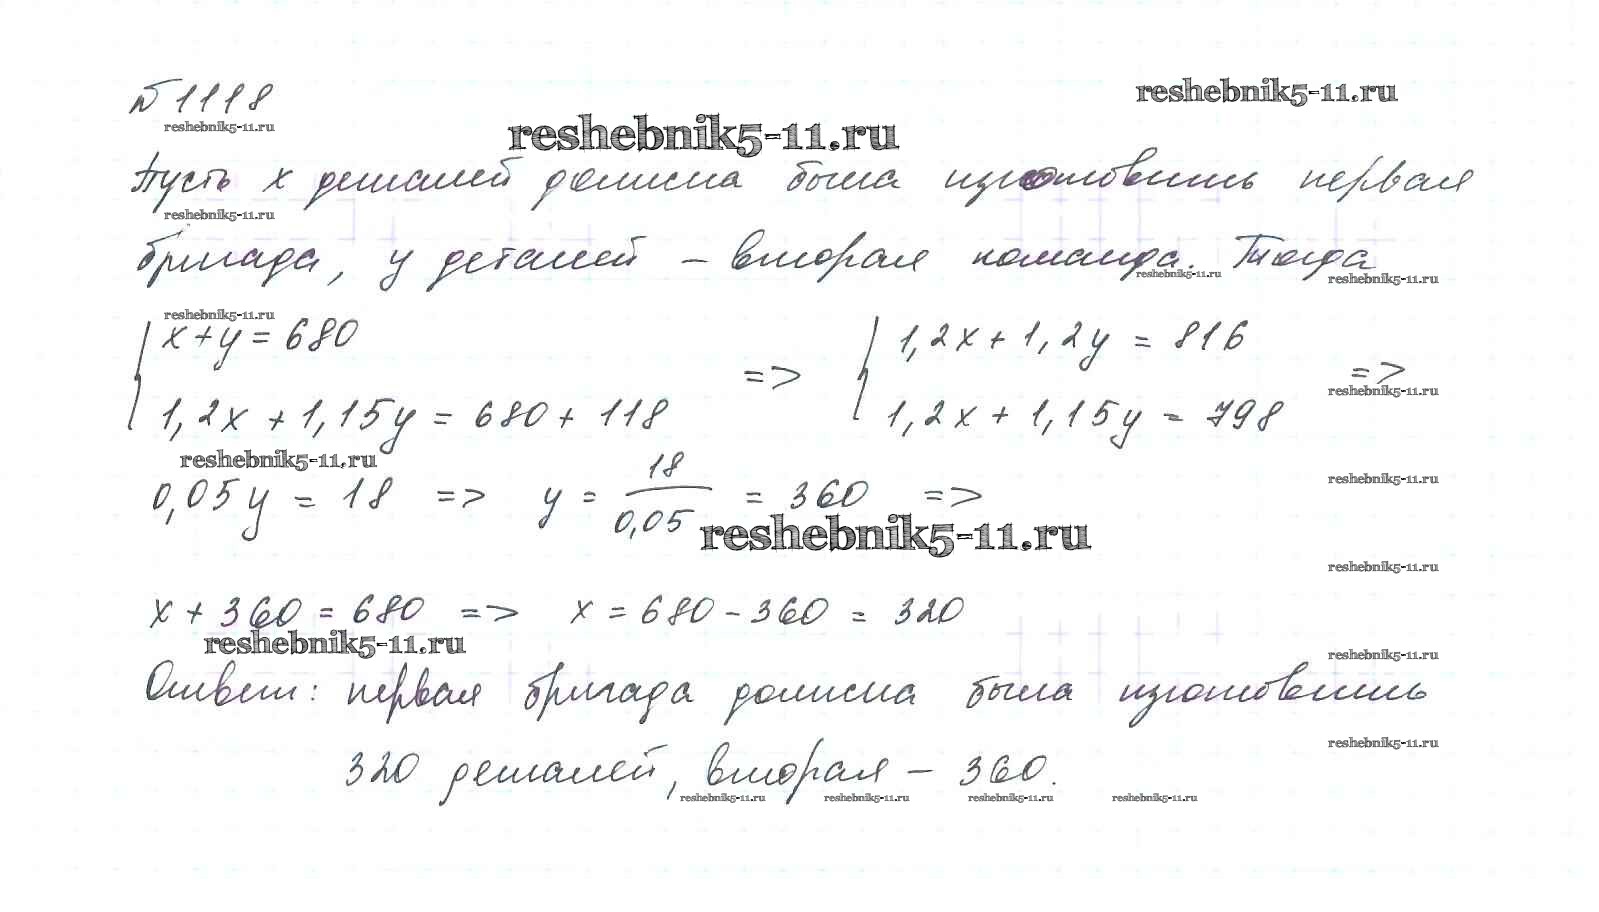 № 1118
reshebnik5-11.ru
reshebnik5-11.ru
reshebnik5-11.ru
Пусть x деталей должна была изготовить первая
reshebnik5-11.ru
бригада, y деталей – вторая команда. Тогда
reshebnik5-11.ru
reshebnik5-11.ru
reshebnik5-11.ru
{ x + y = 680
1,2x + 1,15y = 680 + 118 => { 1,2x + 1,2y = 816
1,2x + 1,15y = 798 =>
reshebnik5-11.ru
reshebnik5-11.ru
0,05y = 18 => y = 18/0,05 = 360 =>
reshebnik5-11.ru
reshebnik5-11.ru
reshebnik5-11.ru
x + 360 = 680 => x = 680 - 360 = 320
reshebnik5-11.ru
reshebnik5-11.ru
Ответ: первая бригада должна была изготовить
reshebnik5-11.ru
320 деталей, вторая – 360.
reshebnik5-11.ru reshebnik5-11.ru reshebnik5-11.ru reshebnik5-11.ru